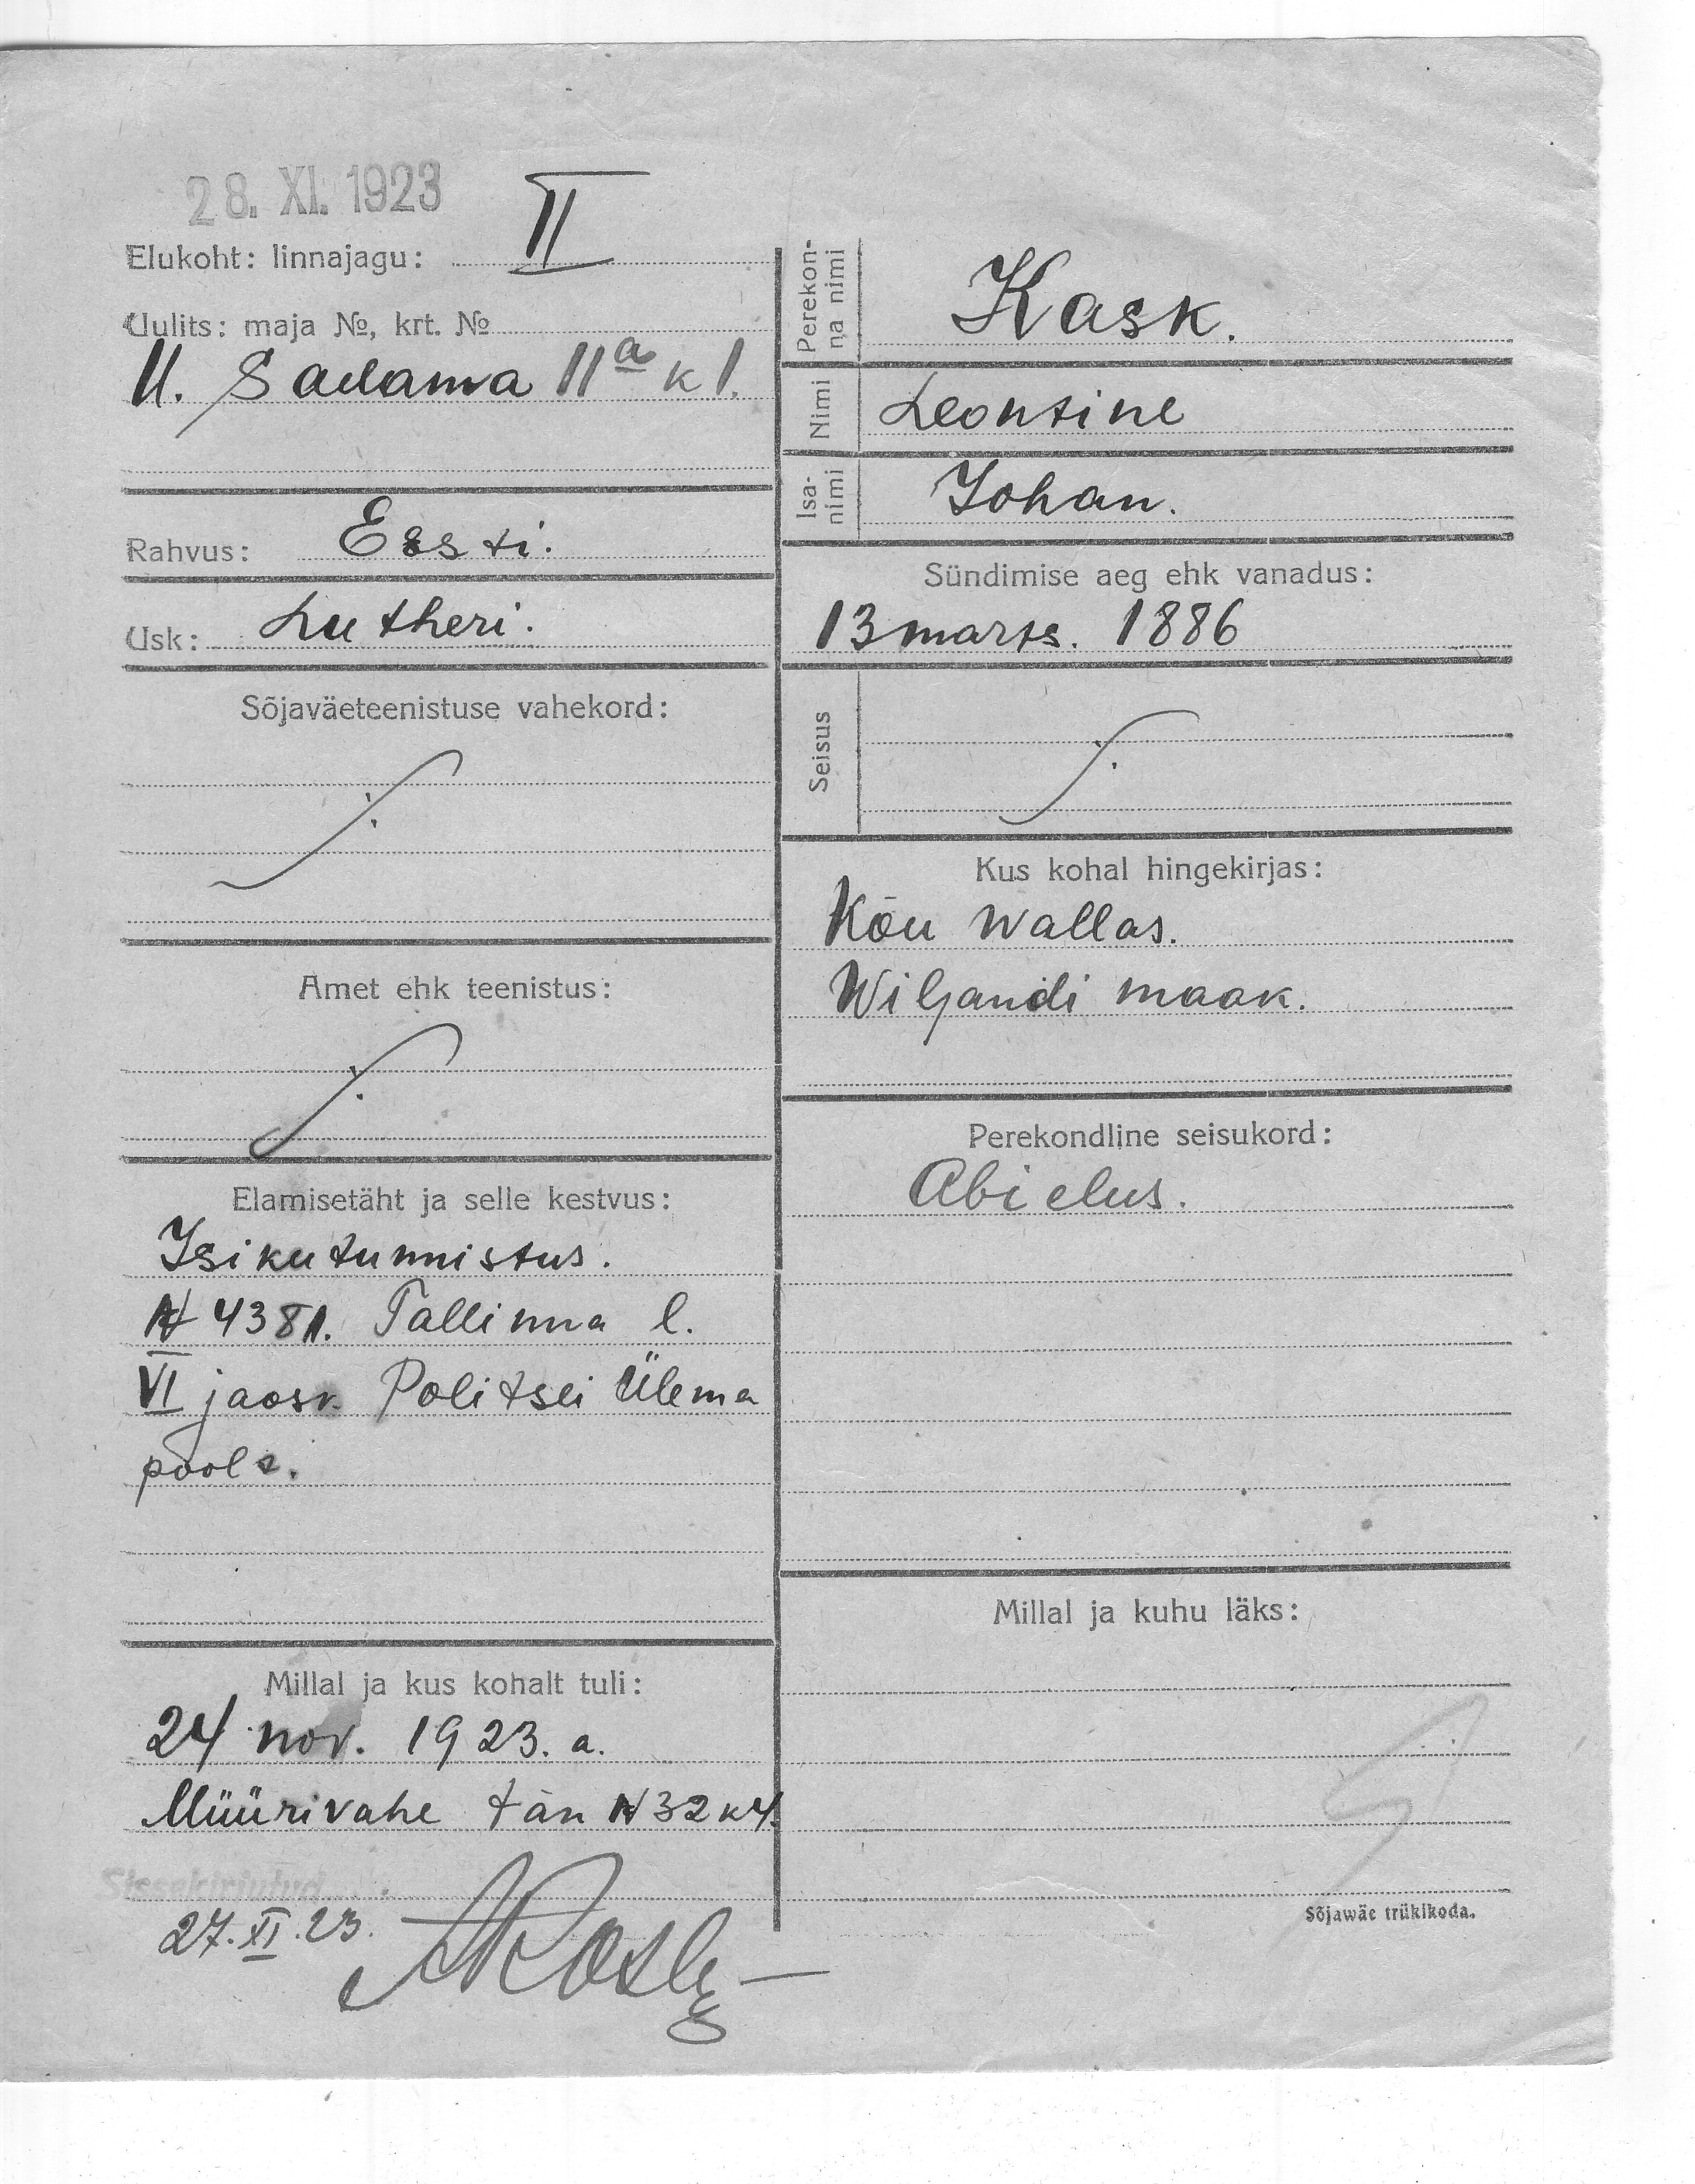 28. XI. 1923
Elukoht: linnajagu: II
Uulits: maja №, krt. №
U. Sadama 11a k 1.
Rahvus: Eesti.
Usk: Lutheri.
Sõjaväeteenistuse vahekord:
Amet ehk teenistus:
Elamisetäht ja selle kestvus:
Isikutunnistus.
N 4381. Tallinna l.
VI jaosk. Politsei Ülema
poolt.
Millal ja kus kohalt tuli:
24 nov. 1923. a.
Müürivahe tän N 32 k 4.
Sissekirjutud
27. XI. 23.
Perekon-
na nimi
Kask.
Nimi Leontine
Isa-
nimi
Johan.
Sündimise aeg ehk vanadus:
13 marts. 1886
Seisus
Kus kohal hingekirjas:
Kõu wallas.
Wiljandi maak.
Perekondline seisukord:
Abielus.
Millal ja kuhu läks:
Sõjawäe trükikoda.